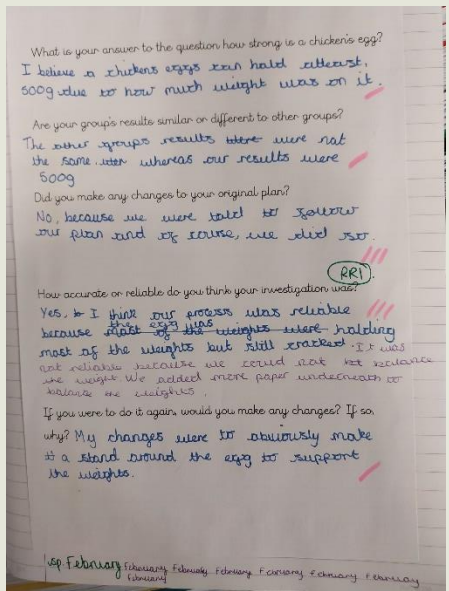 What is your answer to the question how strong is a chicken's egg?
I believe a chickens eggs can hold atleast,
500g due to how much weight was on it.
Are your group's results similar or different to other groups?
The other groups results were were not
the same, whereas our results were
500g
Did you make any changes to your original plan?
No, because we were told to follow
our plan and of course, we did so.
RRI
How accurate or reliable do you think your investigation was?
Yes, I think our process was reliable
the egg was
because most of the weights were holding
most of the weights but still cracked. It was
not reliable because we could not balance
the weight. We added more paper underneath to
balance the weights.
If you were to do it again, would you make any changes? If so,
why? My changes were to obviously make
a stand around the egg to support
the weights.
sp. February February February February February February February
February